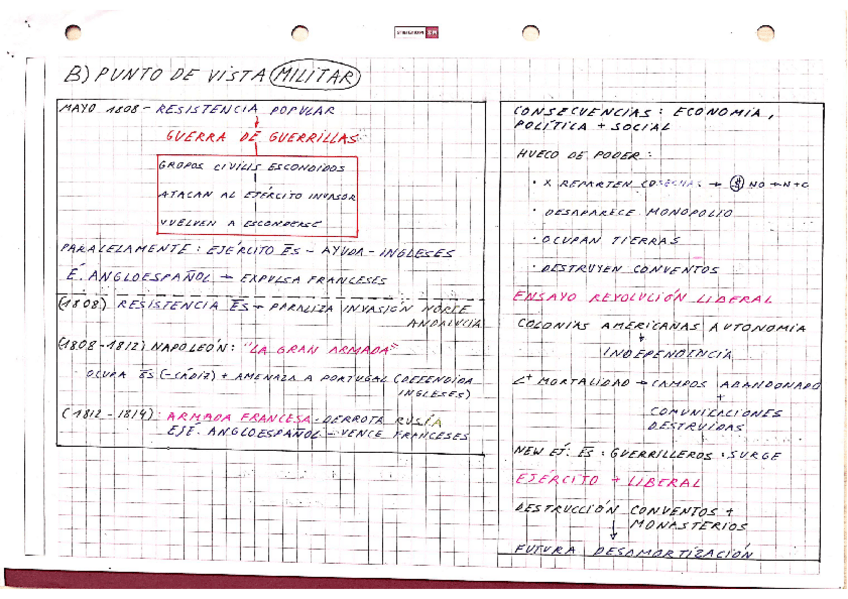 B) PUNTO DE VISTA MILITAR
MAYO 1808 - RESISTENCIA POPULAR
↓
GUERRA DE GUERRILLAS
GROPOS CIVILIS ESCONDIDOS
ATACAN AL EJÉRCITO INVASOR
VUELVEN A ESCONDERSE
PARALELAMENTE: EJÉRCITO ES - AYUDA - INGLESES
E. ANGLOESPAÑOL → EXPULSA FRANCESES
(1808) RESISTENCIA ES → PARALIZA INVASIÓN NORTE
ANDALUCIA
(1808-1812) NAPOLEÓN: "LA GRAN ARMADA"
OCUPA ES (-CÁDIZ) + AMENAZA A PORTUGAL (DEFENDIDA
INGLESES)
(1812-1814): ARMADA FRANCESA · DERROTA RUSIA
EJÉ. ANGLOESPAÑOL - VENCE FRANCESES
CONSECUENCIAS: ECONOMIA,
POLÍTICA + SOCIAL
HUECO DE PODER:
· X REPARTEN COSECHAS → $ NO → N+C
· DESAPARECE MONOPOLIO
· OCUPAN TIERRAS
· DESTRUYEN CONVENTOS
ENSAYO REVOLUCIÓN LIBERAL
COLONIAS AMERICANAS AUTONOMIA
↓
INDEPENDENCIA
MORTALIDAD → CAMPOS ABANDONADO
+
COMUNICACIONES
DESTRUIDAS
NEW EJ. ES: GUERRILLEROS: SURGE
EJÉRCITO + LIBERAL
DESTRUCCIÓN CONVENTOS +
MONASTERIOS
↓
FUTURA DESAMORTIZACIÓN